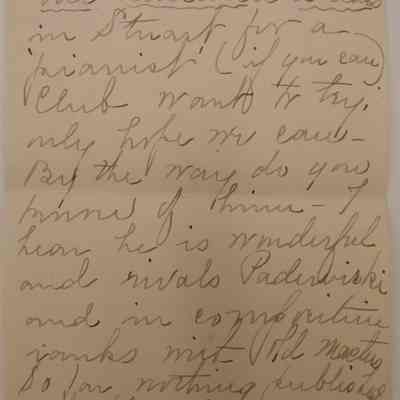 in Stuart for a
'pianist' (if you can)
Club want to try.
only hope we can -
By the way do you
of him - I
hear he is wonderful
and rivals Paderwiski
and in composition
ranks with Old Masters
So far nothing published